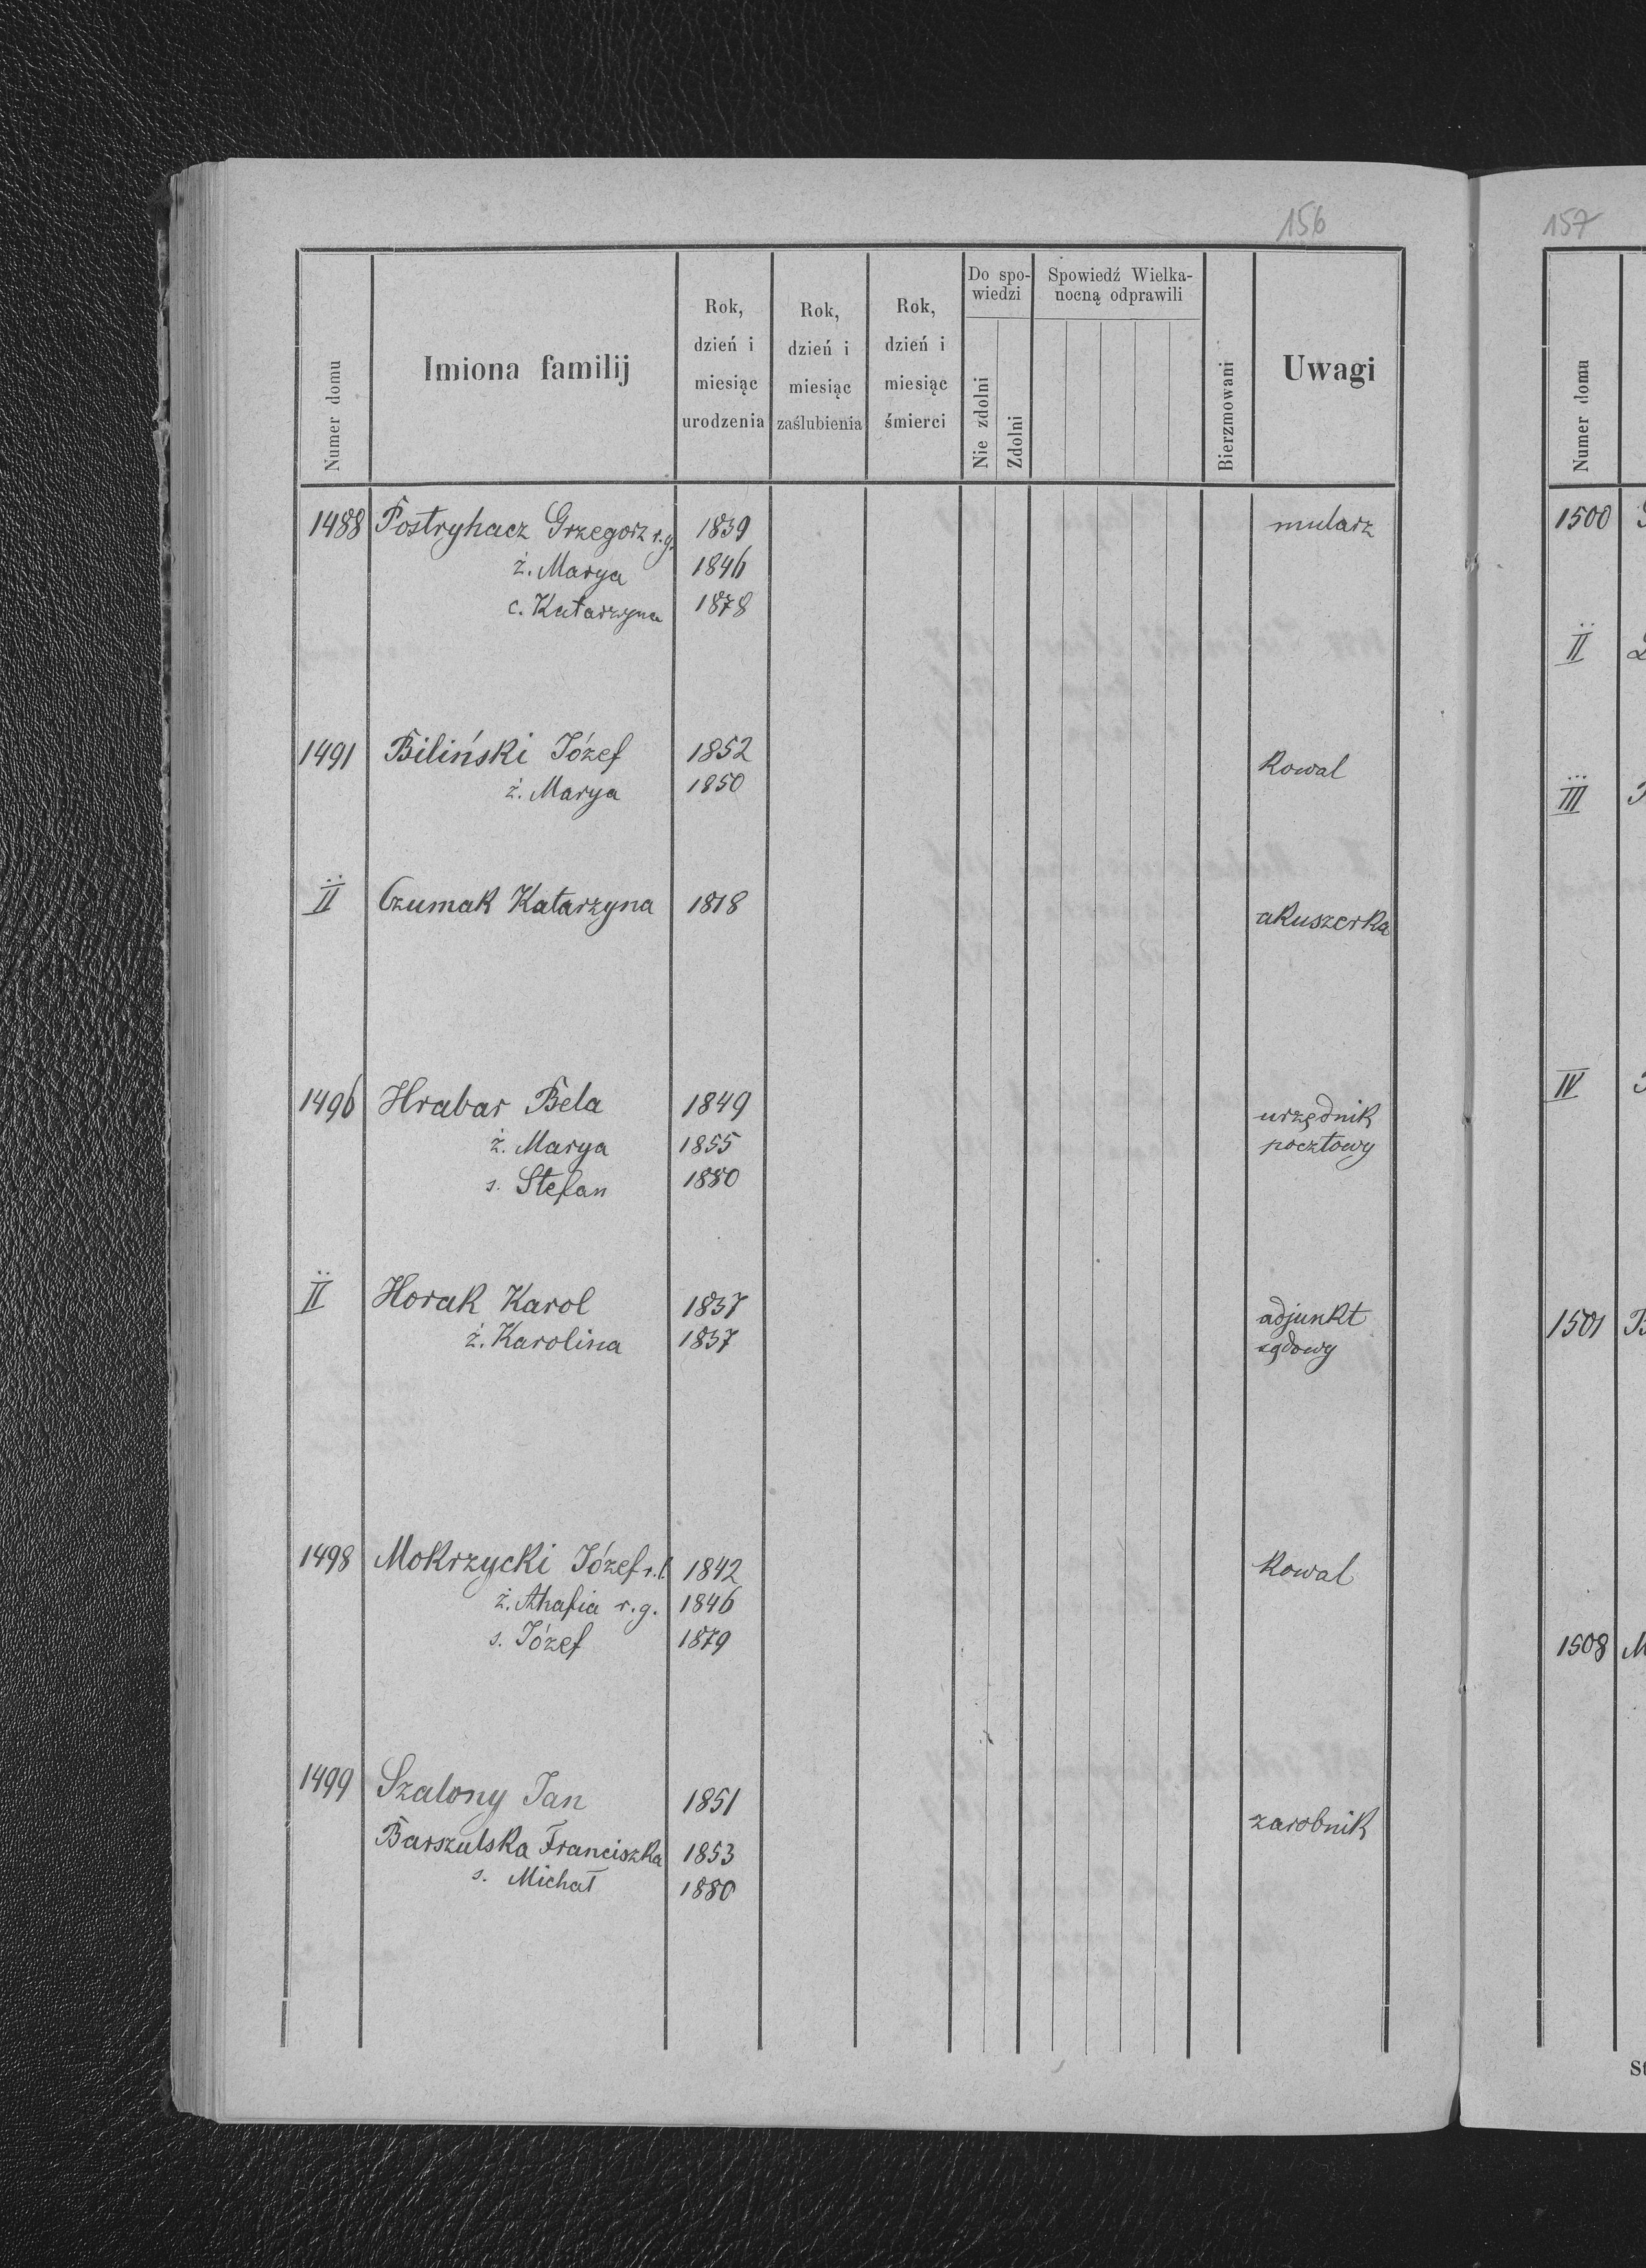 156
Numer domu
Imiona familij
Rok, dzień i miesiąc urodzenia
Rok, dzień i miesiąc zaślubienia
Rok, dzień i miesiąc śmierci
Do spo-
wiedzi
Nie zdolni
Zdolni
Spowiedź Wielka-
nocną odprawili
Bierzmowani
Uwagi
1488 Postryhacz Grzegorz r.g. 1839 mularz
ż. Marya 1846
c. Katarzyna 1878
1491 Biliński Józef 1852 Kowal
ż. Marya 1850
II Czumak Katarzyna 1818 akuszerka
1496 Hrabar Bela 1849 urzędnik
ż. Marya 1855 pocztowy
s. Stefan 1880
II Horak Karol 1837 adjunkt
ż. Karolina 1857 sądowy
1498 Mokrzycki Józef r.ł. 1842 Kowal
ż. Ahafia r.g. 1846
s. Józef 1879
1499 Szalony Jan 1851 zarobnik
Barszulska Franciszka 1853
s. Michał 1880
157
Numer domu
1500
II
III
IV
1501
1508